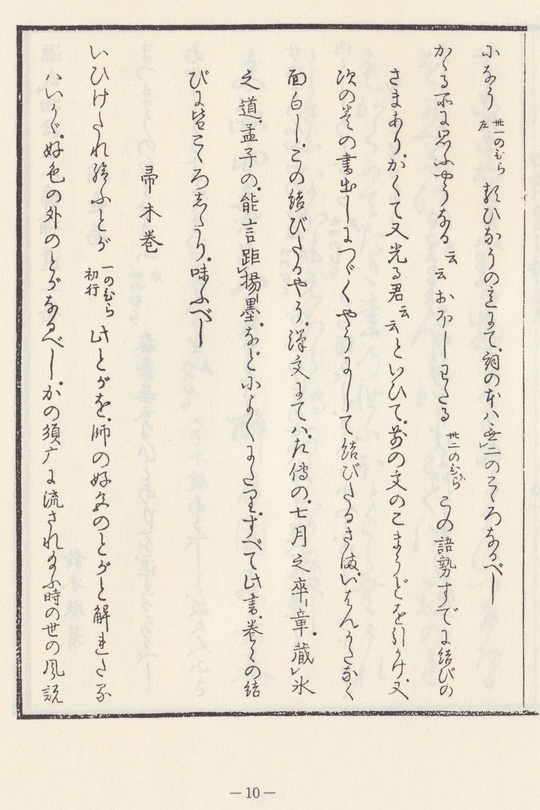 小なり 卅一のむら 左 類ひなうの意にて、詞の本ハ無二のこゝろなるべし
かゝる所に思ふやうなる云云 おぼしわたる 卅二のむら この語勢すでに結びの
さまあり。かくて又光る君云云といひて、前の文のこまうどを引うけ、又
次の巻の書出しにつゞくやうにして結びたるさま、いはんかたなく
面白し。この結びたるやう、漢文にてハ、左傳の、七月之卒章、藏氷
之道、孟子の、能言距揚墨などに よく にたり。すべて此書、巻々の結
びに皆こゝろあり。味ふべし
帚木巻
いひけたれ給ふとが 一のむら 初行 此とがを、師の好色のとがと解れたる
ハいかゞ。好色の外のとがなるべし。かの須广に流され給ふ時の世の風説
—10—